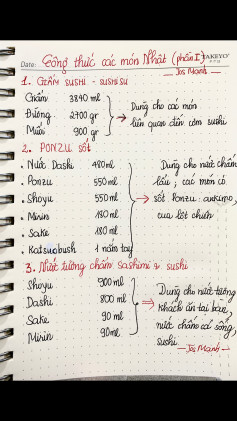 TAKEYO
Date:
Công thức các món Nhật (phần I)
Jos Mạnh
1. GIẤM SUSHI - SUSHISU
Giấm 3840 ml
Đường 2700 gr
Muối 900 gr
→ Dùng cho các món
liên quan đến cơm sushi
2. PONZU SỐT
. Nước Dashi 480 ml
. Ponzu 550 ml
. Shoyu 550 ml
. Mirin 180 ml
. Sake 180 ml
. Katsuobush 1 nắm tay
Dùng cho nước chấm
lẩu ; các món có
→ sốt Ponzu :
cua lột chiên
3. Nước tương chấm Sashimi & sushi
Shoyu 900 ml
Dashi 800 ml
Sake 90 ml
Mirin 90 ml
Dùng cho nước tương
→ khách ăn tại bàn,
nước chấm cá sống,
sushi
— Jos Mạnh